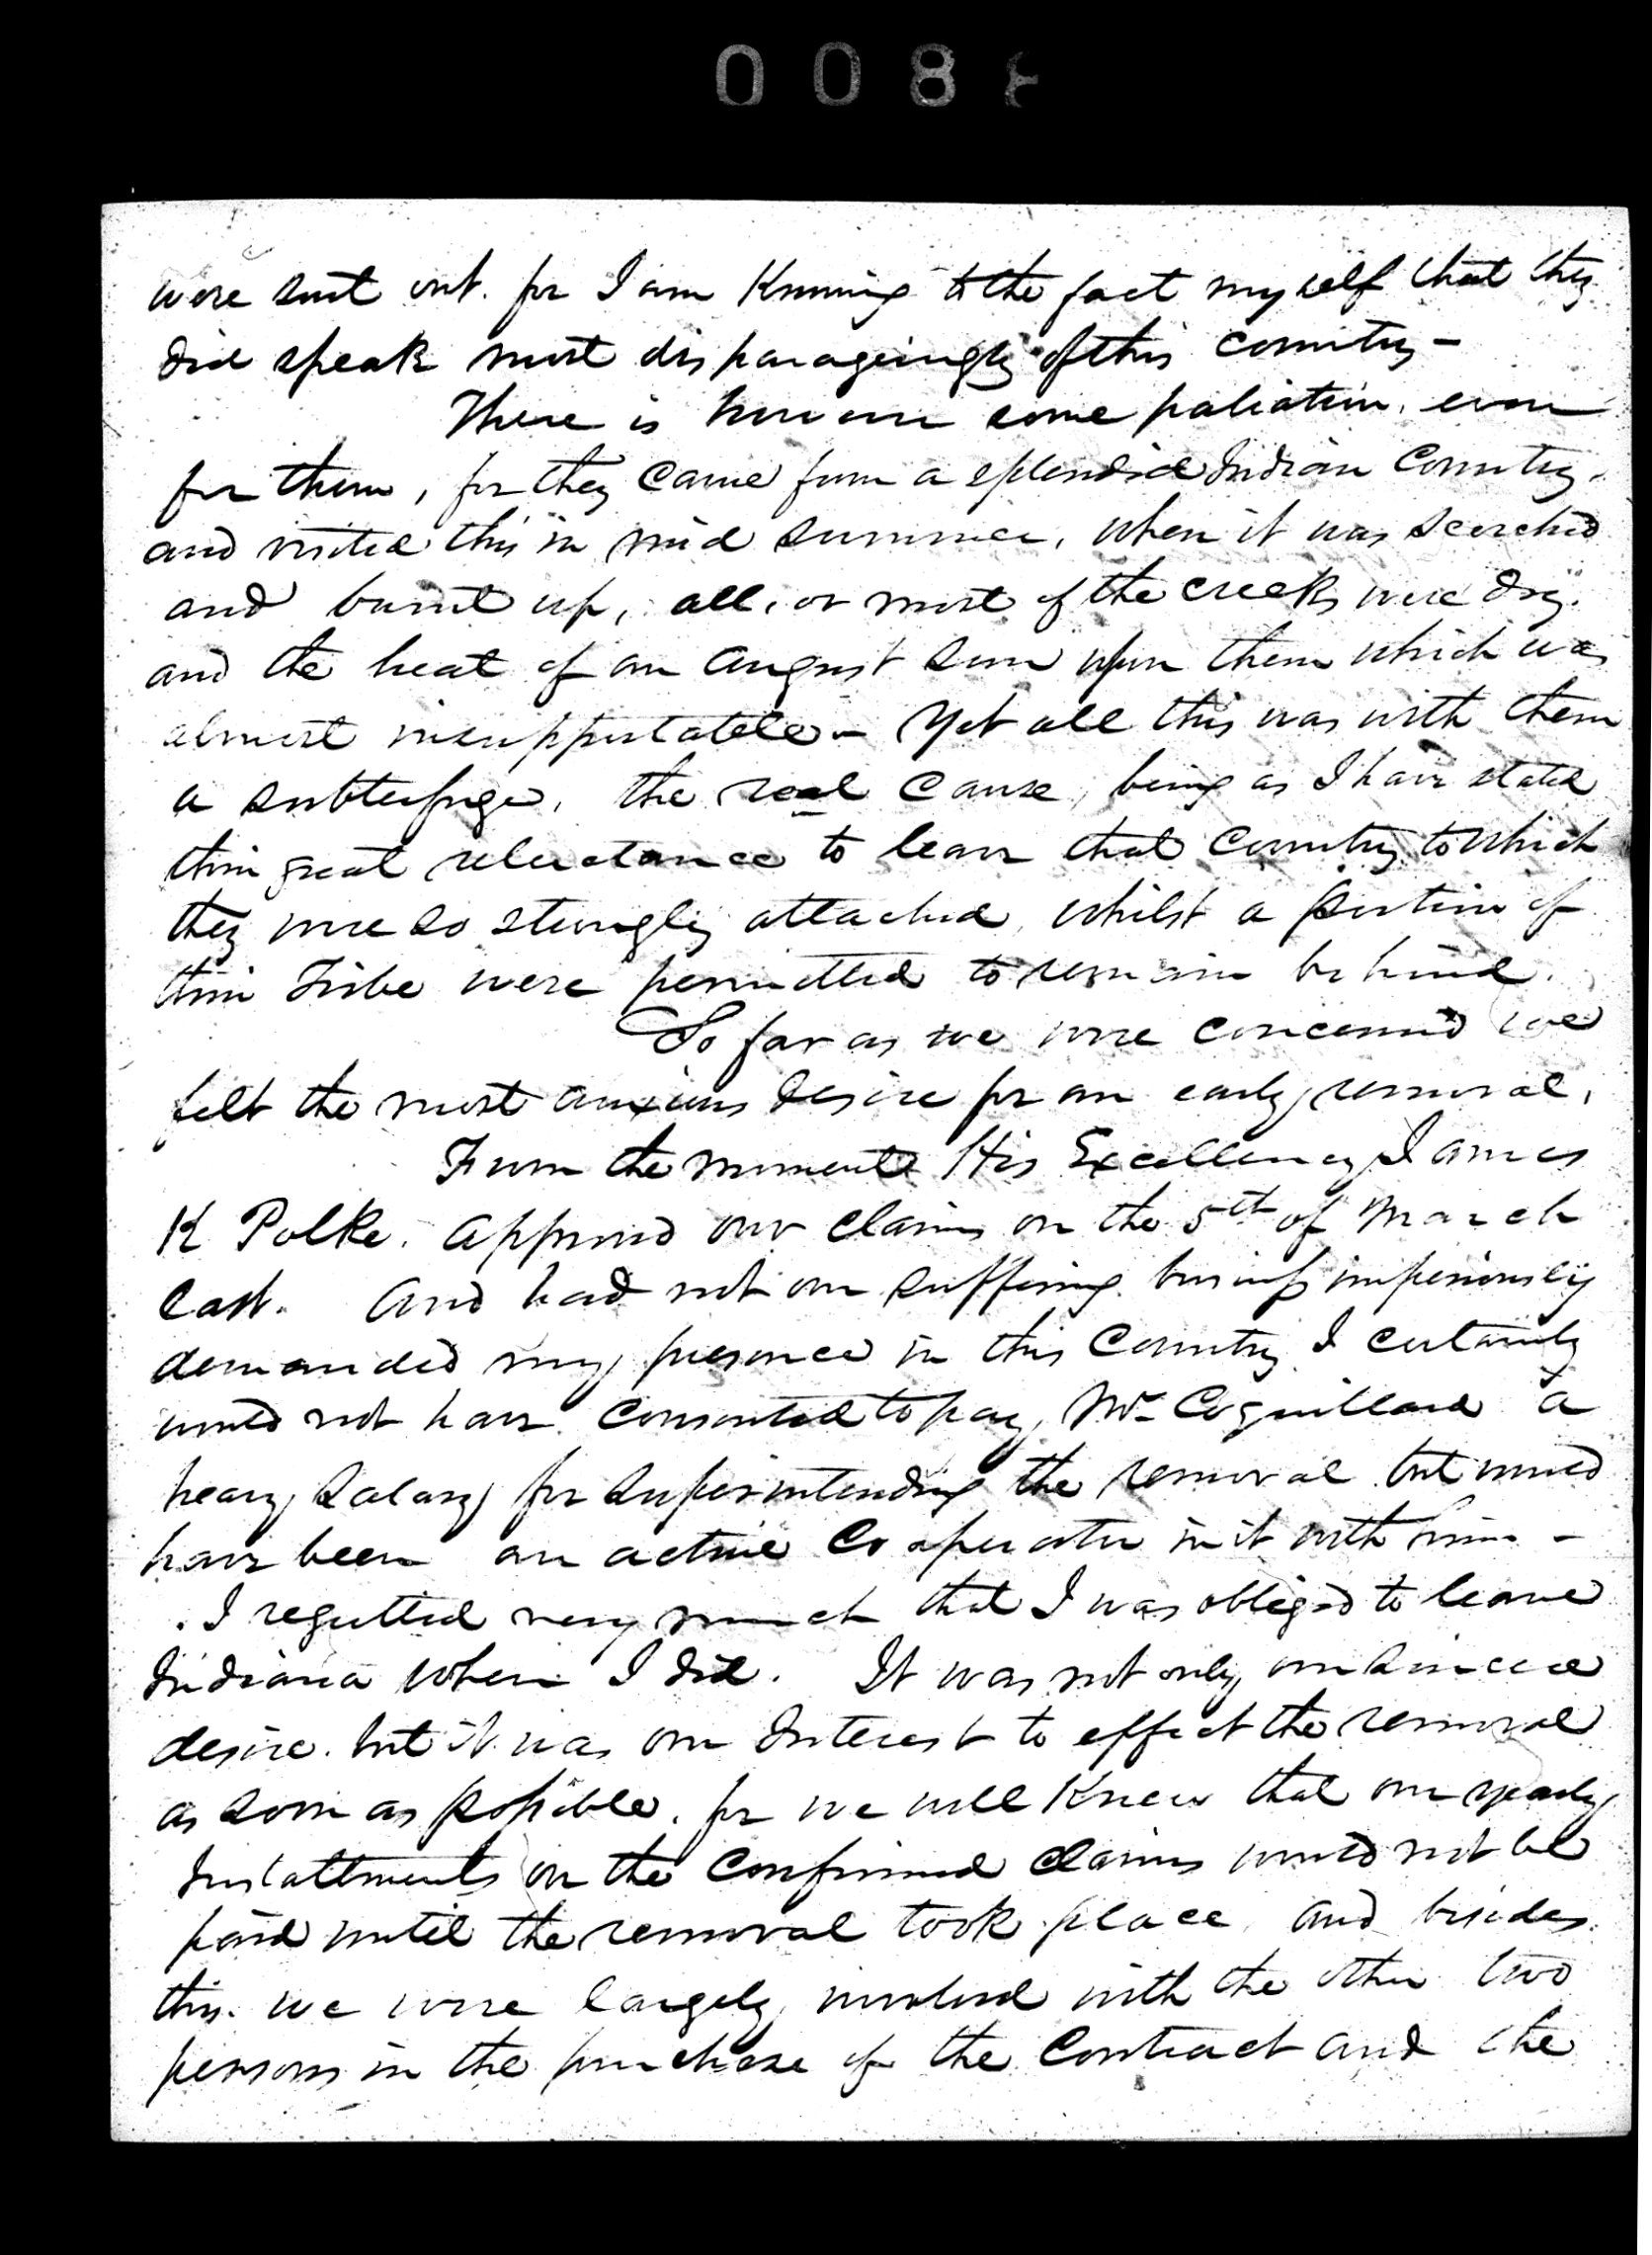 008
were sent out. for I am Knowing to the fact myself that they
did speak most disparageingly of this country –
There is however some paliation, even
for them, for they came from a splendid Indian Country,
and visited this in mid summer, when it was scorched
and burnt up, all, or most of the creeks were dry.
and the heat of an August sun upon them which was
almost insupportable – Yet all this was with them
a subterfuge, the real cause, being as I have stated
their great reluctance to leave that Country to which
they were so strongly attached, whilst a portion of
their Tribe were permitted to remain behind.
So far as we were concerned we
felt the most anxious desire for an early removal,
From the moment His Excellency James
K Polke. approved our claims on the 5th of March
last. And had not our suffering business imperiously
demanded my presence in this Country I certainly
would not have consented to pay Mr Coquillard a
heavy salary for superintending the removal but would
have been an active Co operator in it with him –
I regretted very much that I was obliged to leave
Indiana when I did. It was not only our sincere
desire. but it was our Interest to effect the removal
as soon as possible. for we well Knew that our yearly
Instattments on the Confirmed Claims would not be
paid until the removal took place, and besides
this. we were largely involved with the other two
persons in the purchase of the Contract and the